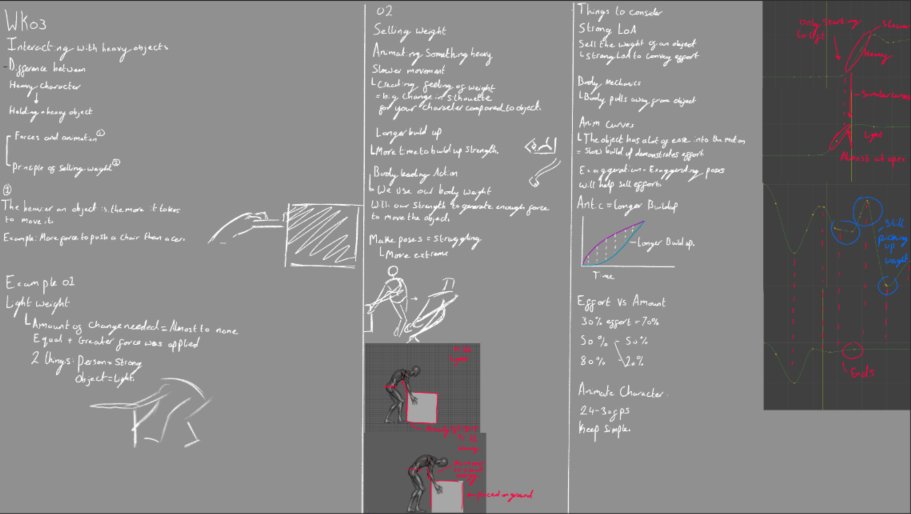 WK03
Interacting with heavy objects
Difference between
Heavy Character
Holding a heavy object
Forces and animation ①
Principle of selling weight ②
①
The heavier an object is, the more it takes
to move it.
Example: More force to push a chair than a car.
Example 01
Light weight
Amount of change needed = Almost to none
Equal + Greater force was applied
2 things: Person = Strong
Object = Light
02
Selling Weight
Animating Something heavy
Slower movement
Creating feeling of weight
= big change in silhouette
for your character compared to object.
Longer build up
More time to build up strength.
Body leading Action
We use our body weight
With our strength to generate enough force
to move the object.
Make poses = Struggling
More extreme
on ground
Things to consider
Strong LOA
Sell the weight of an object
Strong LOA to convey effort
Body Mechanics
Body pulls away from object
Anim Curves
The object has a lot of ease into the motion
= Slow build up demonstrates effort
Exaggeration = Exaggerating poses
will help sell effort.
Antic = Longer Buildup
Longer Build up.
Time
Effort vs Amount
30% effort = 70%
50% 50%
80% 20%
Animate Character.
24-30fps
Keep Simple.
Only starting
to lift
Slower
Heavy
Similar curves
Light
Almost at apex
Still
picking
up
weight
Ends